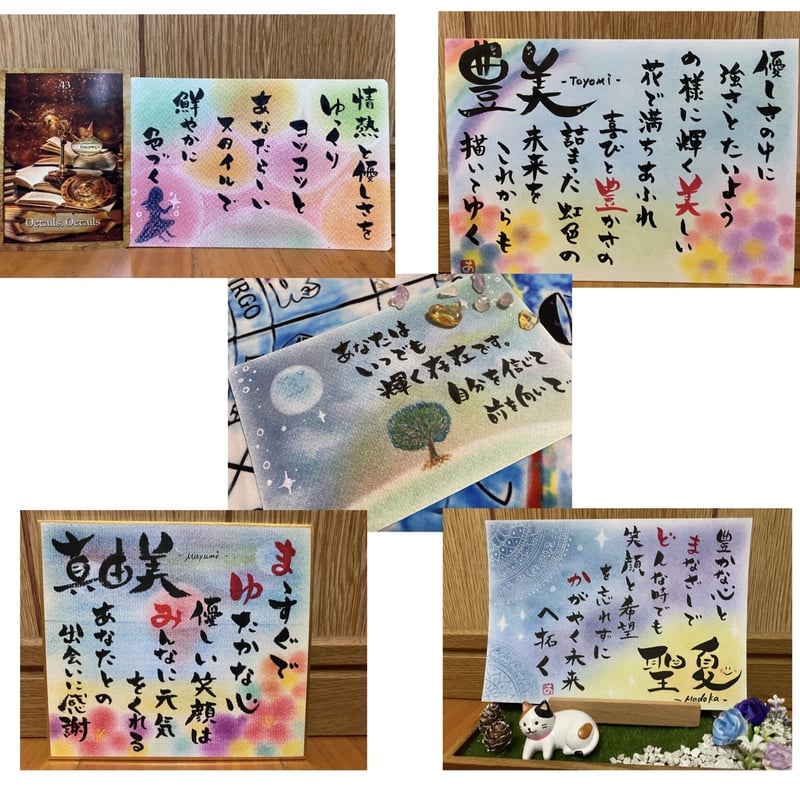 43
Details, Details
情熱と優しさを
ゆっくり
コツコツと
あなたらしい
スタイルで
鮮やかに
色づく
豊美
-Toyomi-
優しさの中に
強さとたいよう
の様に輝く美しい
花で満ちあふれ
喜びと豊かさの
詰まった虹色の
未来を
これからも
描いてゆく
あ
IRGO
あなたは
いつでも
輝く存在です。
自分を信じて
前を向いて
真由美
-Mayumi-
まっすぐで
ゆたかな心
優しい笑顔は
みんなに元気
をくれる
あなたとの
出会いに感謝
豊かな心と
まなざしで
どんな時でも
笑顔と希望
を忘れずに
かがやく未来
へ拓く
あ
聖夏
-Madoka-